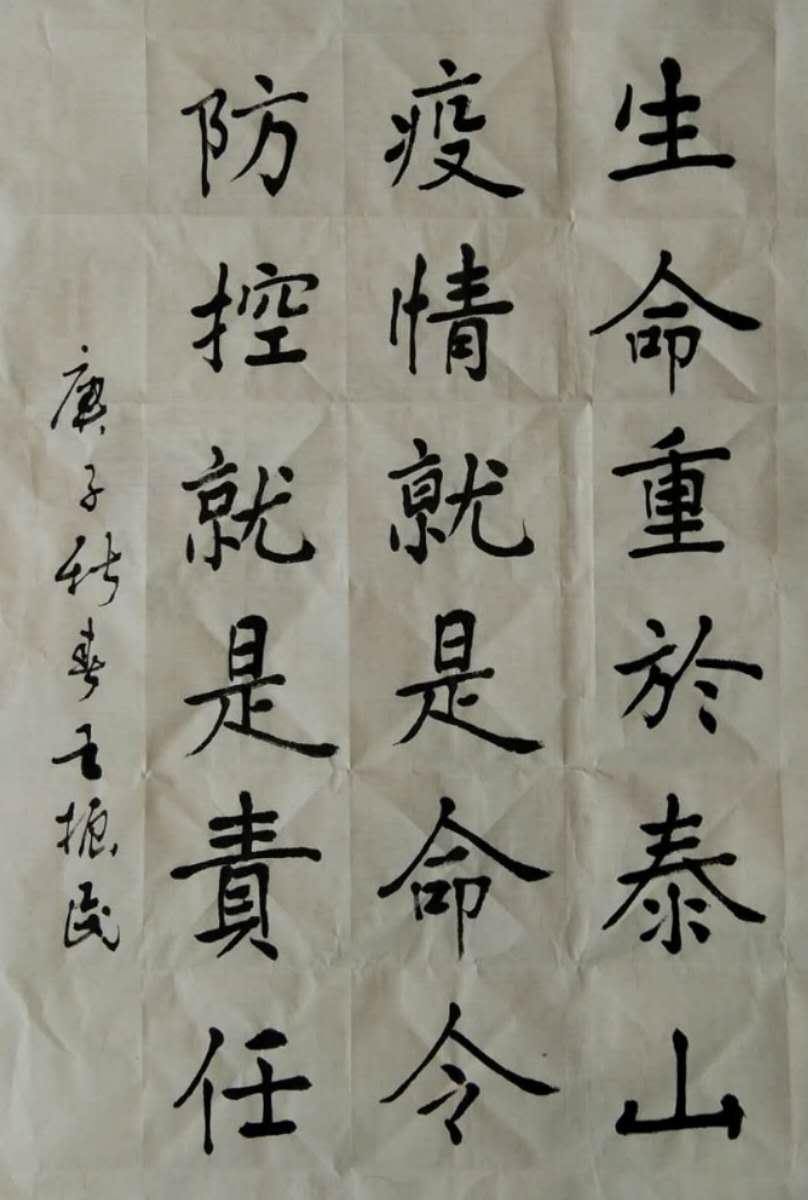 生命重於泰山
疫情就是命令
防控就是責任
庚子新春王振民